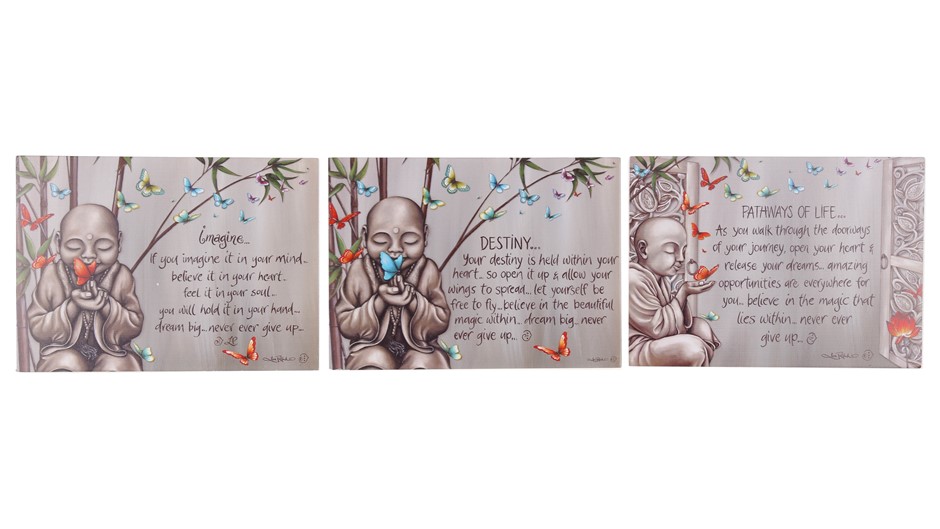 imagine...
If you imagine it in your mind...
believe it in your heart...
feel it in your soul...
you will hold it in your hand...
dream big... never ever give up...
DESTINY...
Your destiny is held within your
heart... so open it up & allow your
wings to spread... let yourself be
free to fly... believe in the beautiful
magic within... dream big... never
ever give up...
PATHWAYS OF LIFE...
As you walk through the doorways
of your journey, open your heart &
release your dreams... amazing
opportunities are everywhere for
you... believe in the magic that
lies within... never ever
give up...